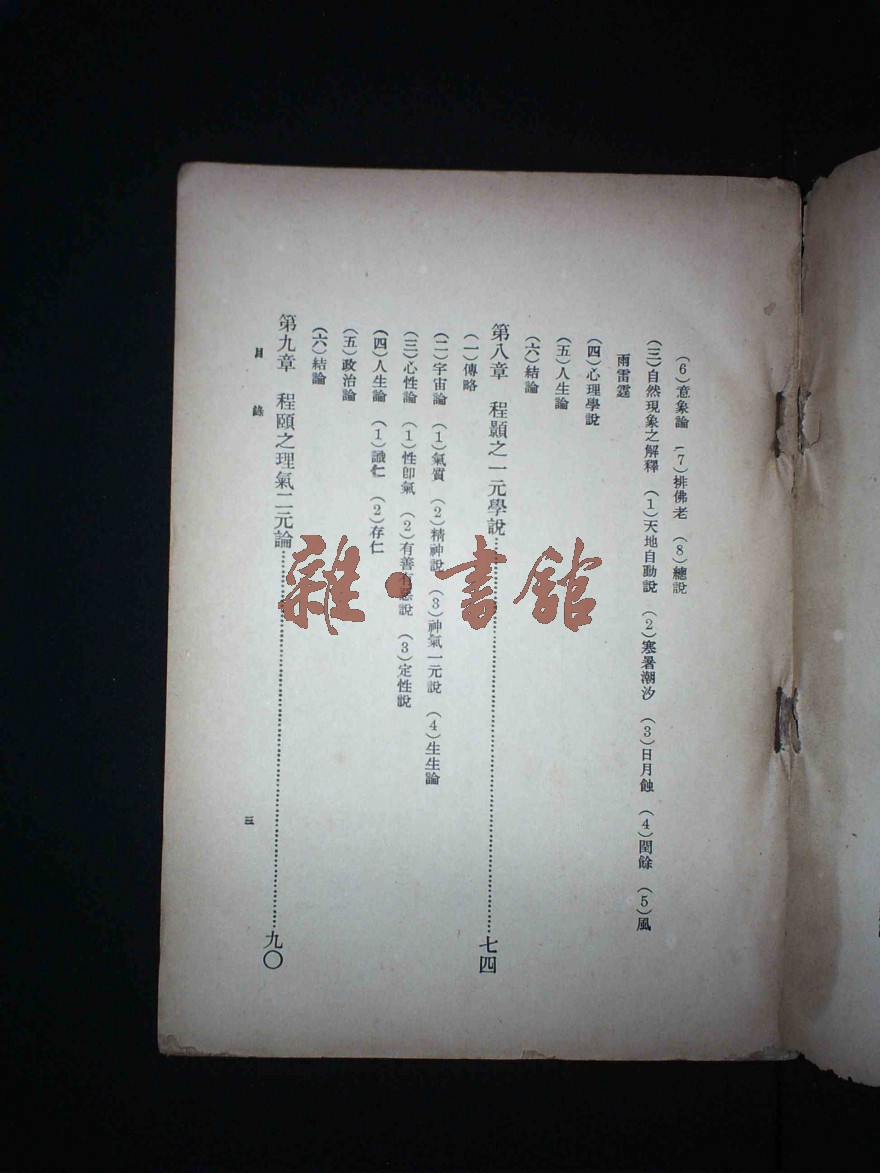 （6）意象論　（7）排佛老　（8）總說
（三）自然現象之解釋　（1）天地自動說　（2）寒暑潮汐　（3）日月蝕　（4）閏餘　（5）風
雨雷霆
（四）心理學說
（五）人生論
（六）結論
第八章　程顥之一元學說……七四
（一）傳略
（二）宇宙論　（1）氣質　（2）精神說　（3）神氣一元說　（4）生生論
（三）心性論　（1）性卽氣　（2）有善有惡說　（3）定性說
（四）人生論　（1）識仁　（2）存仁
（五）政治論
（六）結論
第九章　程頤之理氣二元論……九〇
目錄
三
雜·書館